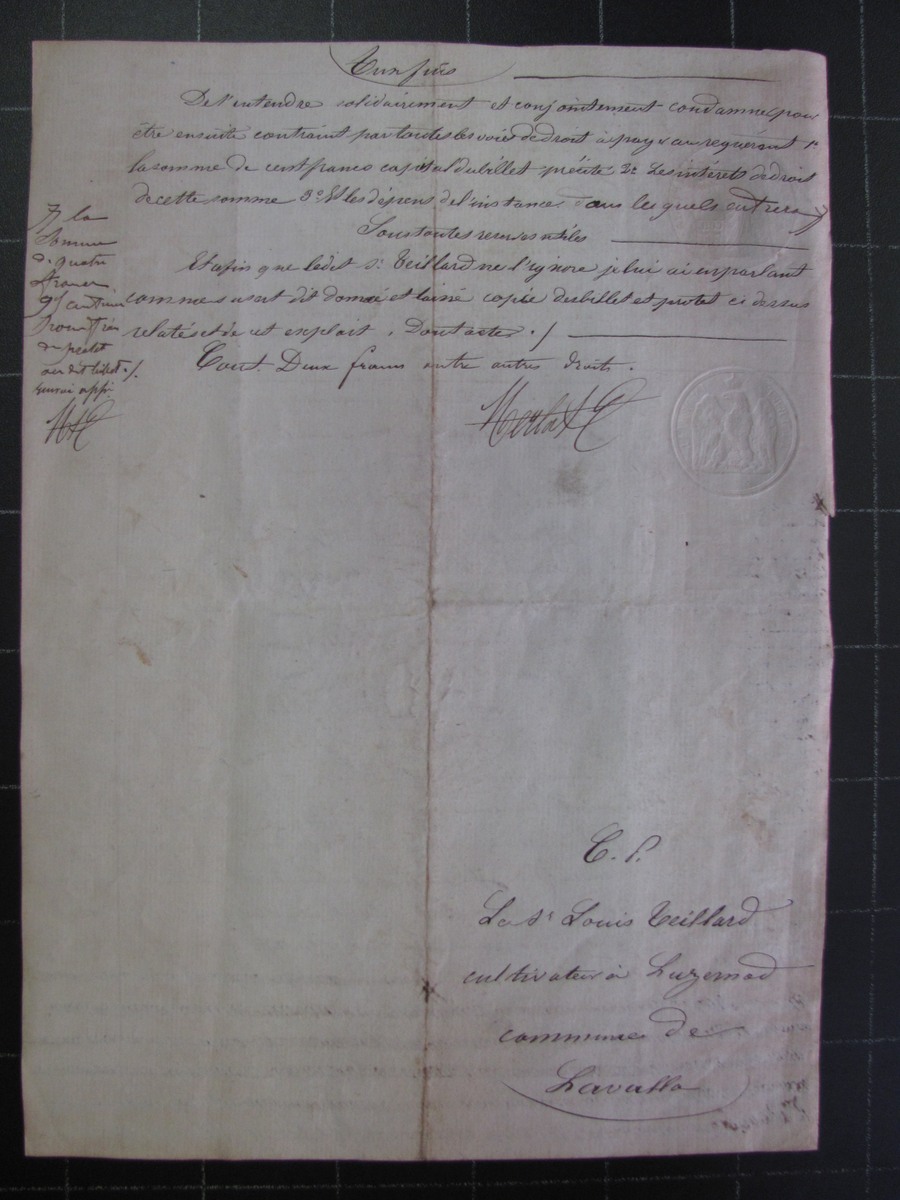 Aux fins
De s'entendre solidairement et conjointement condamner pour
être ensuite contraint par toutes les voies de droit à payer au requérant 1°
la somme de cent francs capital du billet précité 2° Les intérêts de droit
de cette somme 3° Et les dépens de l'instance dans lesquels entrera
Sous toutes reserves utiles
Et afin que ledit Sr Teillard ne l'ignore je lui ai en parlant
comme susest dit donné et laissé copie du billet et protet ci dessus
relatés et de cet exploit. Dont acte ./
Cout. Deux francs outre autres droits.
la
Somme
de quatre
francs
95 centimes
pour frais
du protet
du dit billet ./.
renvoi app.
C. P.
Le Sr Louis Teillard
cultivateur à Luzernod
commune de
Lavalla